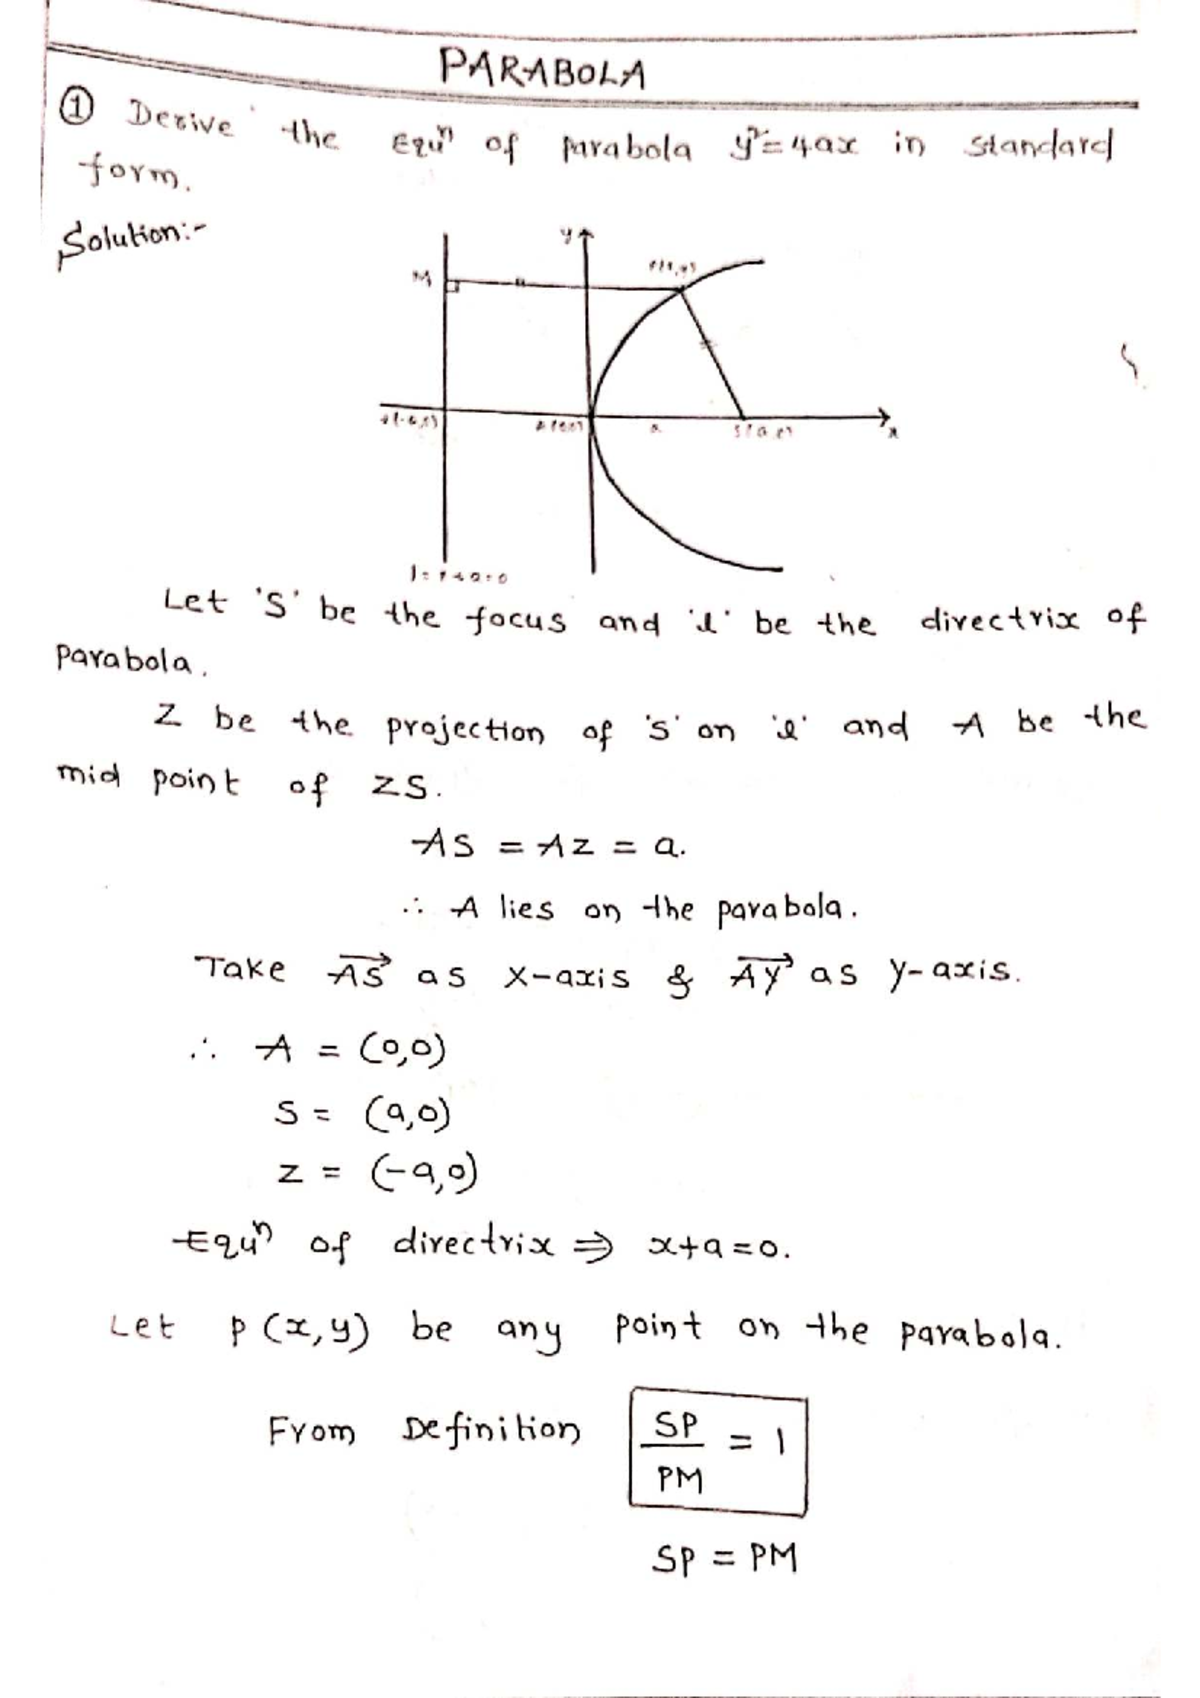 PARABOLA
① Derive the Equⁿ of parabola y²=4ax in standard
form.
Solution:-
y
M
P(x,y)
Z(-a,0)
A(0,0)
a
S(a,0)
x
l = x+a=0
Let 'S' be the focus and 'l' be the directrix of
parabola.
Z be the projection of 'S' on 'l' and A be the
mid point of ZS.
AS = AZ = a.
∴ A lies on the parabola.
Take A͞S⃗ as X-axis & A͞Y⃗ as y-axis.
∴ A = (0,0)
S = (a,0)
Z = (-a,0)
Equⁿ of directrix ⇒ x+a=0.
Let p(x,y) be any point on the parabola.
From Definition SP/PM = 1
SP = PM